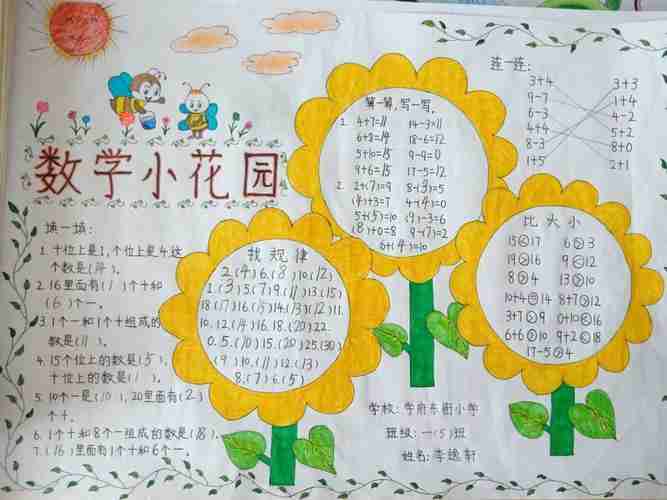 数学小花园
填一填:
1. 十位上是1,个位上是4这
个数是(14)。
2. 16里面有(1)个十和
(6)个一。
3. 1个一和1个十组成的
数是(11)。
4. 15个位上的数是(5),
十位上的数是(1)。
5. 10个一是(10),20里面有(2)
个十。
6. 1个十和8个一组成的数是(18)。
7. (16)里面有1个十和6个一。
找规律
2.(4)6.(8)10.(12)
1.(3)5.(7)9.(11)13.(15)
18.(17)16.(15)14.(13)(12)11.
10.12.(14)16.18.(20)22.
0.5.(10)15.(20)25.(30)
(9)10.(11)12.(13)
8.(7)6.(5)
算一算,写一写。
1. 4+7=11 14-3=11
6+8=14 18-6=12
5+10=15 9-9=0
9+6=15 17-5=12
2. 2+(7)=9 8-(3)=5
(4)+3=7 4-(4)=0
5+(5)=10 (9)-3=6
(8)+0=8 9-(7)=2
6+(4)=10
连一连:
3+4 3+3
9-7 1+4
6-3 4-2
4+4 5+2
8-3 8+0
1+5 2+1
比大小
15<17 6>3
19>16 9<12
8>4 13>10
10+4=14 8+7>12
3+7>9 0+10<16
6+6>10 9+2<18
17-5>4
学校:学府东街小学
班级:一(5)班
姓名:李逸轩